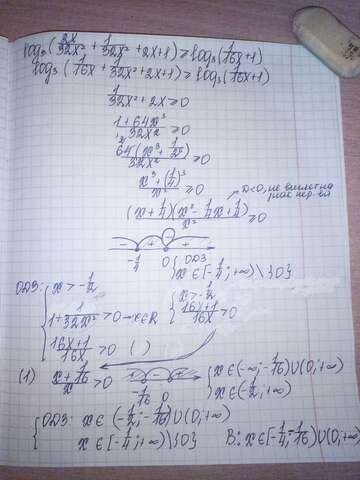 log₃(2x/32x² + 1/32x² + 2x+1) ≥ log₃(1/16x + 1)
log₃(1/16x + 1/32x² + 2x+1) ≥ log₃(1/16x + 1)
1/32x² + 2x ≥ 0
1+64x³/32x² ≥ 0
64(x³ + 1/2⁶)/32x² ≥ 0
x³ + (1/4)³/x² ≥ 0
D<0, не
(x + 1/4)(x² - 1/4x + 1/4)/x² ≥ 0
- + +
-1/4 0 { ОДЗ
x ∈ [-1/4; +∞) \ {0}
ОДЗ: { x > -1/2
1 + 1/32x² > 0 → x ∈ R
16x+1/16x > 0 ( )
{ x > -1/2
16x+1/16x > 0
(1) x + 1/16/x > 0
-1/16 0
{ x ∈ (-∞; -1/16) ∪ (0; +∞)
x ∈ (-1/2; +∞)
{ ОДЗ: x ∈ (-1/2; -1/16) ∪ (0; +∞)
x ∈ [-1/4; +∞) \ {0}
В: x ∈ [-1/4; -1/16) ∪ (0; +∞)